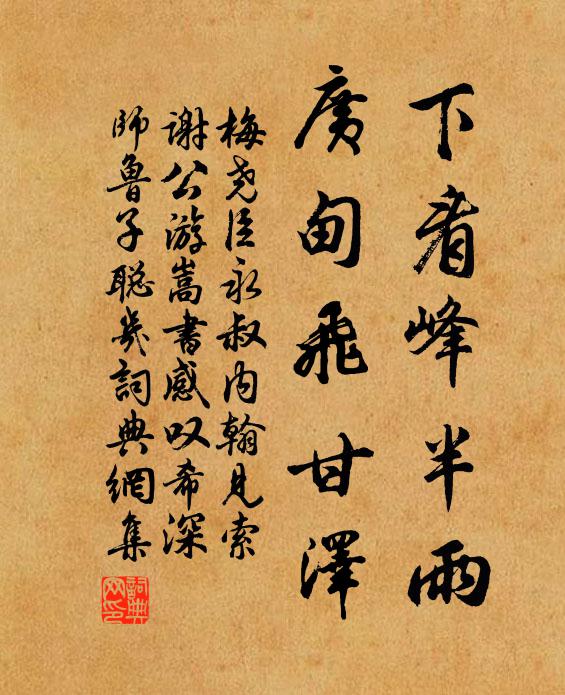 下看峰半雨
廣甸飛甘澤
梅堯臣永叔內翰見索
謝公游嵩書感叹希深
師魯子聪幾詞典網集
詞典